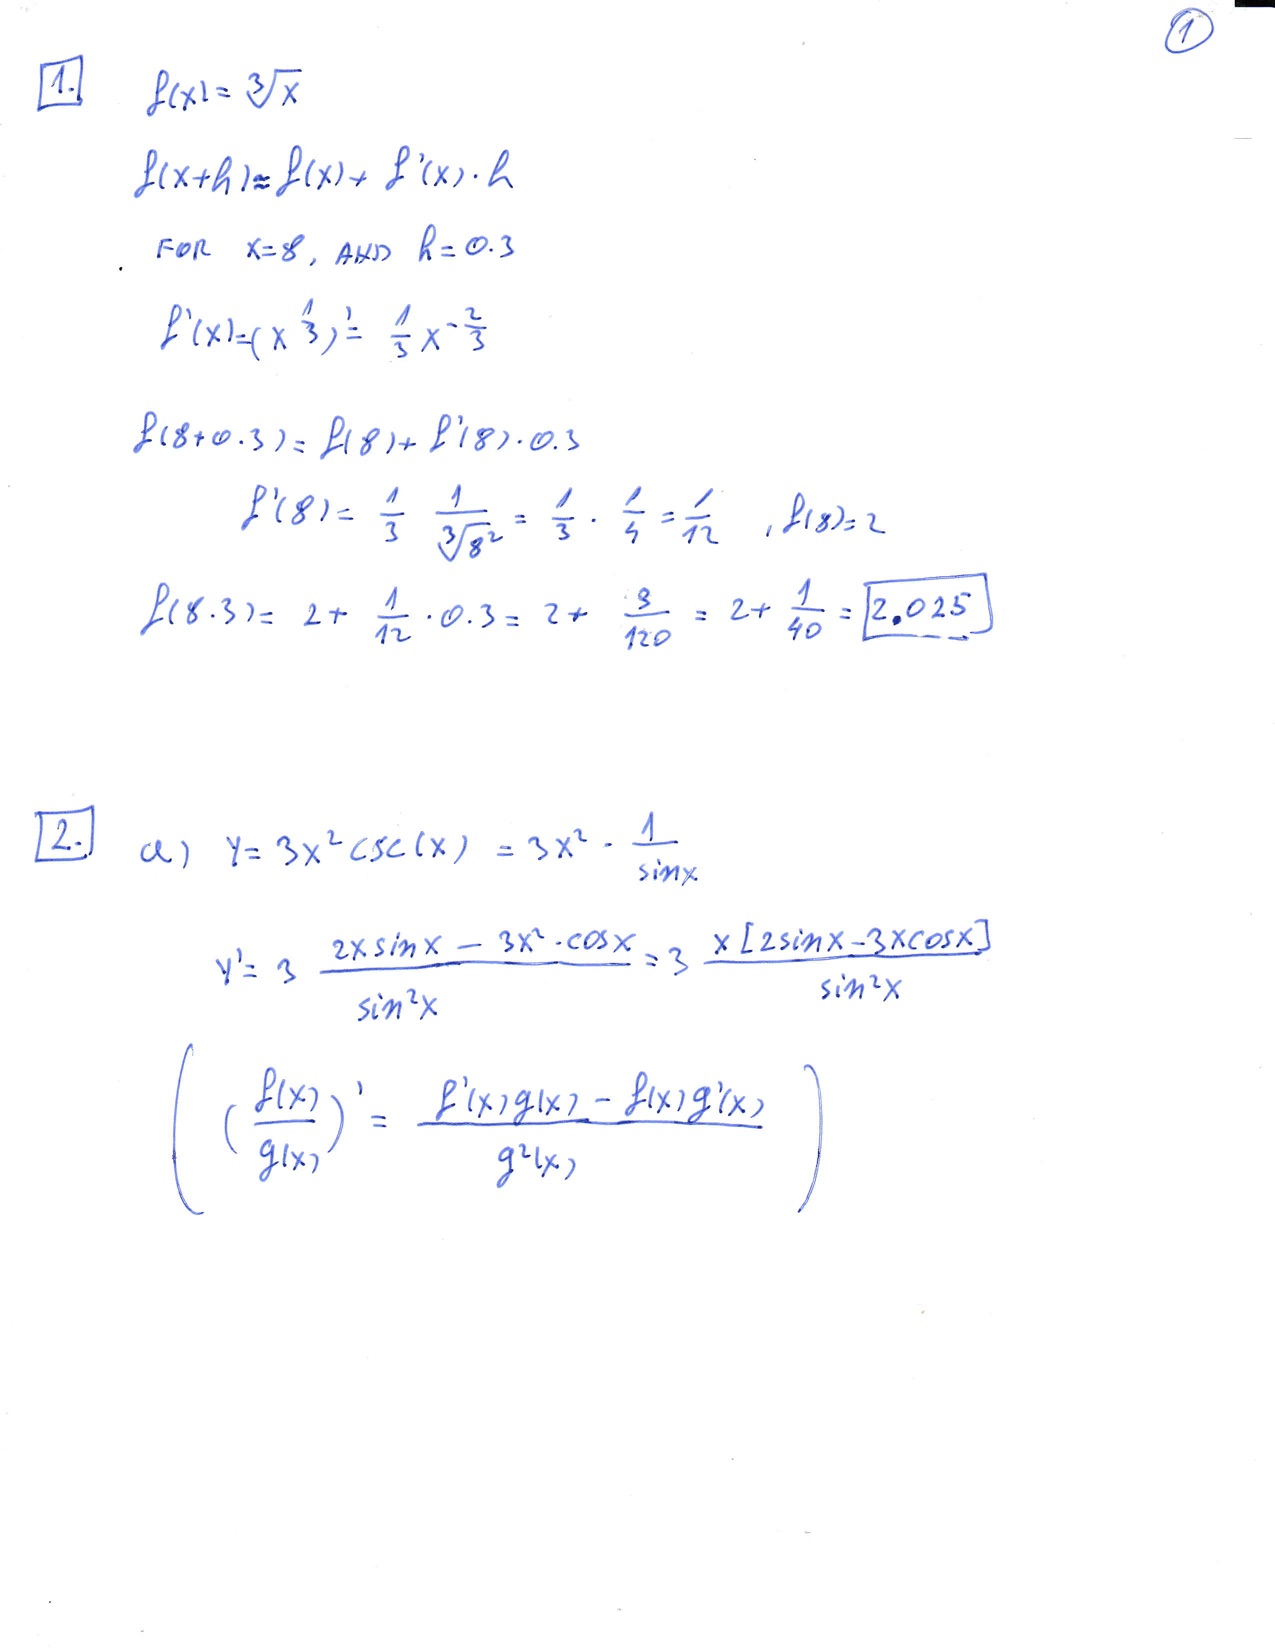 1
1. f(x) = ∛x
f(x+h) ≈ f(x) + f'(x)·h
FOR x=8, AND h=0.3
f'(x) = (x^{1/3})' = 1/3 x^{-2/3}
f(8+0.3) = f(8) + f'(8)·0.3
f'(8) = 1/3 1/∛8² = 1/3 · 1/4 = 1/12 , f(8)=2
f(8.3) = 2 + 1/12 · 0.3 = 2 + 3/120 = 2 + 1/40 = 2.025
2. a) y = 3x² csc(x) = 3x² · 1/sinx
y' = 3 (2x sinx − 3x²·cosx)/sin²x = 3 x[2sinx − 3xcosx]/sin²x
( (f(x)/g(x))' = (f'(x)g(x) − f(x)g'(x))/g²(x) )